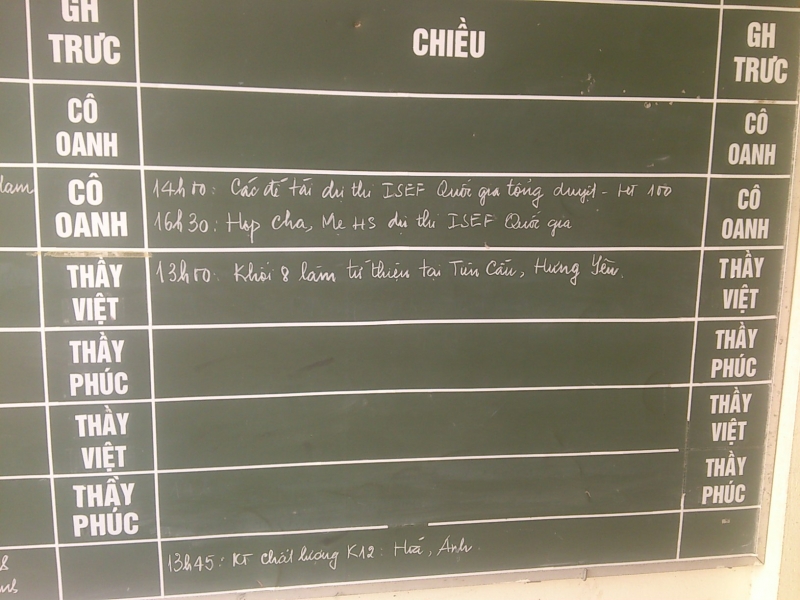 GH
TRƯC
CHIỀU
GH
TRƯC
CÔ
OANH
CÔ
OANH
CÔ
OANH
14h00: Các đề tài dự thi ISEF Quốc gia tổng duyệt - HT 100
16h30: Họp cha, Mẹ HS dự thi ISEF Quốc gia
CÔ
OANH
THẦY
VIỆT
13h00: Khối 8 làm từ thiện tại Hưng Yên.
THẦY
VIỆT
THẦY
PHÚC
THẦY
PHÚC
THẦY
VIỆT
THẦY
VIỆT
THẦY
PHÚC
THẦY
PHÚC
13h45: KT chất lượng K12: Hoá, Anh.